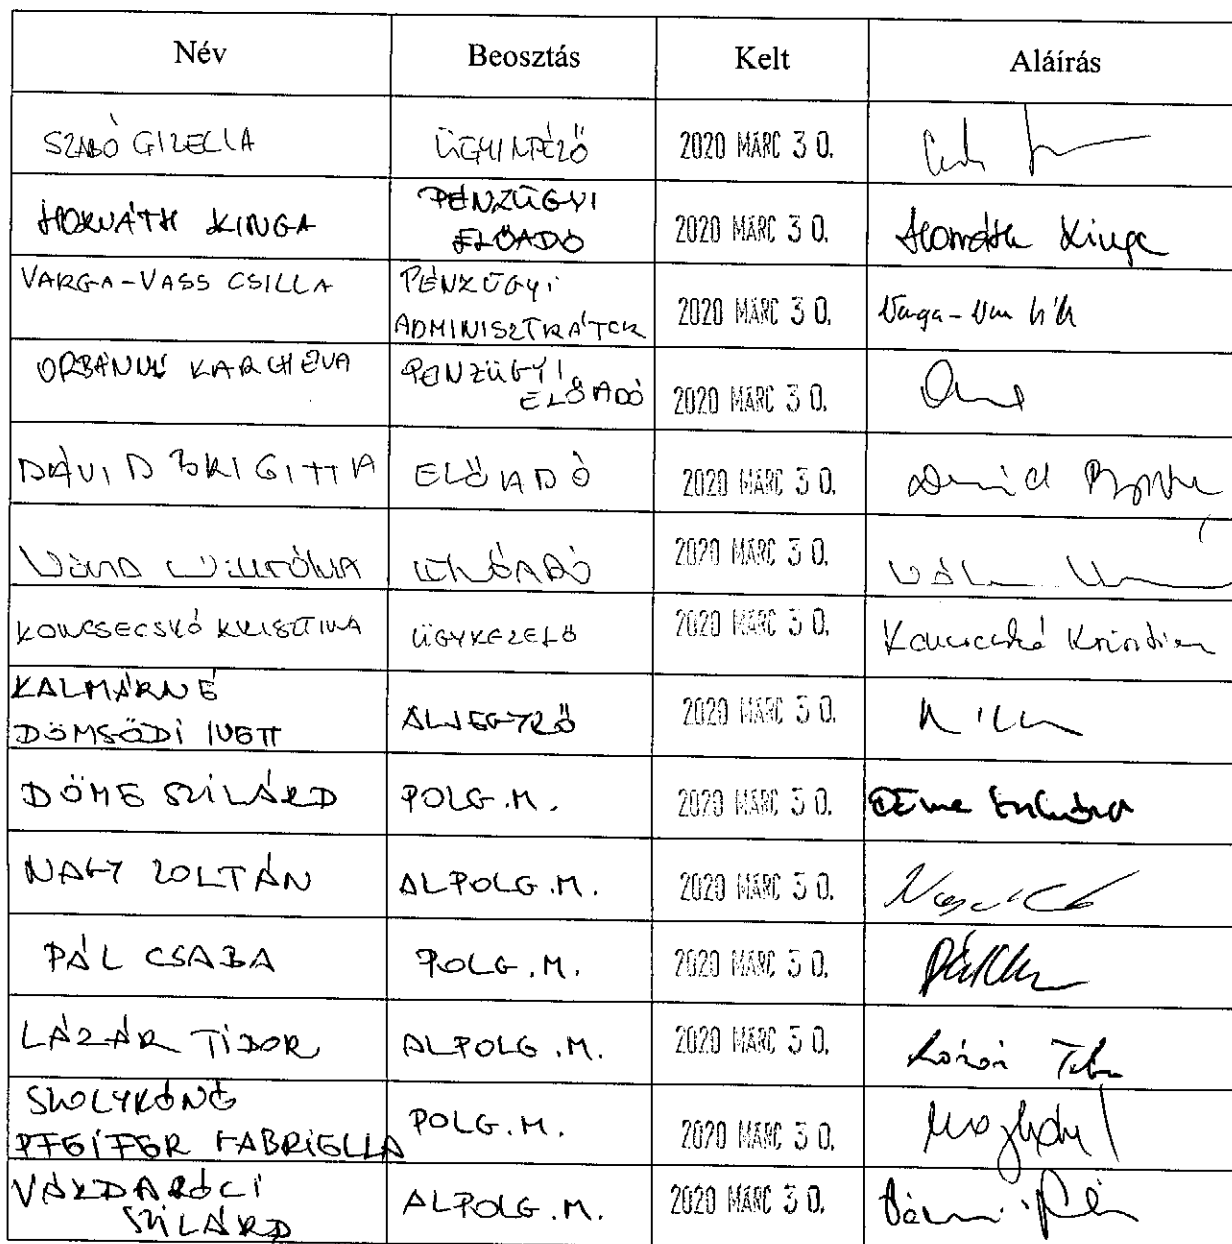 Név Beosztás Kelt Aláírás
SZABÓ GIZELLA ÜGYINTÉZŐ 2020 MÁRC 30.
HORVÁTH KINGA PÉNZÜGYI ELŐADÓ 2020 MÁRC 30. Horváth Kinga
VARGA-VASS CSILLA PÉNZÜGYI ADMINISZTRÁTOR 2020 MÁRC 30. Varga-Vass
ORBÁNNÉ KARCH ÉVA PÉNZÜGYI ELŐADÓ 2020 MÁRC 30.
DÁVID BRIGITTA ELŐADÓ 2020 MÁRC 30. Dávid
VIKTÓRIA ELŐADÓ 2020 MÁRC 30.
KONCSECSKÓ KRISZTINA ÜGYKEZELŐ 2020 MÁRC 30. Koncsecskó Krisztina
KALMÁRNÉ
DÖMSÖDI IVETT ALJEGYZŐ 2020 MÁRC 30.
DÖME SZILÁRD POLG.M. 2020 MÁRC 30. Döme Szilárd
NAGY ZOLTÁN ALPOLG.M. 2020 MÁRC 30.
PÁL CSABA POLG.M. 2020 MÁRC 30.
LÁZÁR TIBOR ALPOLG.M. 2020 MÁRC 30. Lázár Tibor
PFEIFER GABRIELLA POLG.M. 2020 MÁRC 30.
VÁRDARÓCI
SZILÁRD ALPOLG.M. 2020 MÁRC 30.